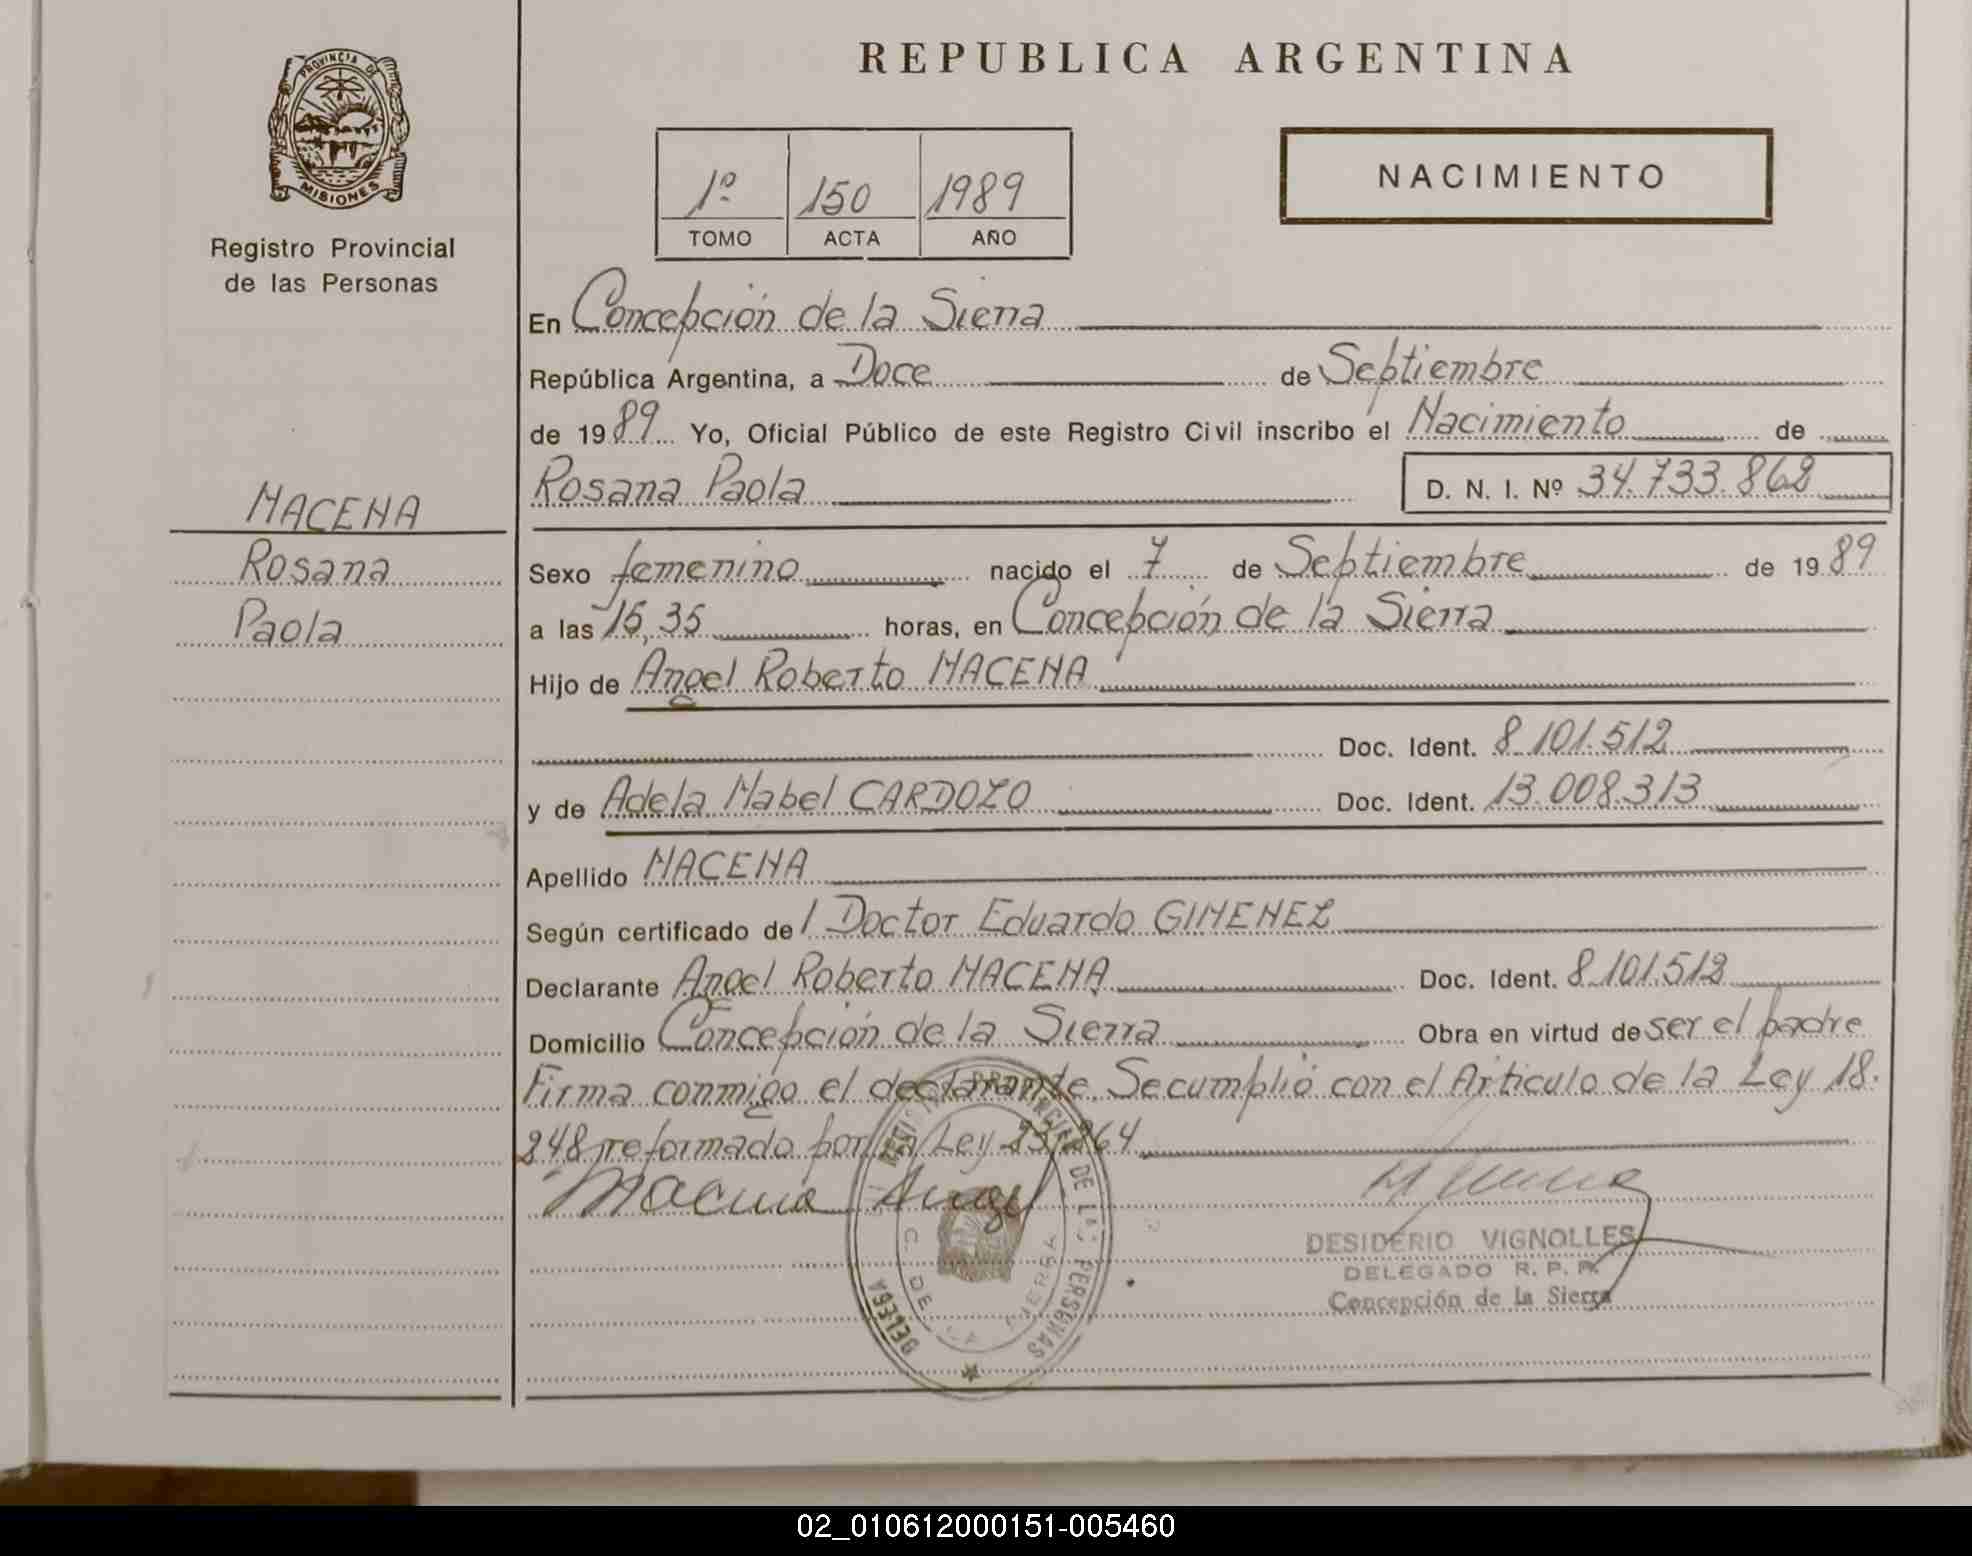 REPUBLICA ARGENTINA
PROVINCIA DE
MISIONES
Registro Provincial
de las Personas
1º 150 1989
TOMO ACTA AÑO
NACIMIENTO
En Concepción de la Sierra
República Argentina, a Doce de Septiembre
de 1989 Yo, Oficial Público de este Registro Civil inscribo el Nacimiento de
Rosana Paola D. N. I. Nº 34.733.862
MACENA
Rosana
Paola
Sexo femenino nacido el 7 de Septiembre de 1989
a las 15,35 horas, en Concepción de la Sierra
Hijo de Angel Roberto MACENA
Doc. Ident. 8.101.512
y de Adela Mabel CARDOZO Doc. Ident. 13.008.313
Apellido MACENA
Según certificado del Doctor Eduardo GIMENEZ
Declarante Angel Roberto MACENA Doc. Ident. 8.101.512
Domicilio Concepción de la Sierra Obra en virtud de ser el padre
Firma conmigo el declarante. Se cumplió con el Articulo de la Ley 18.
248 reformado por la Ley 23.264
Macena Angel
REGISTRO PROVINCIAL DE LAS PERSONAS
C. DE LA SIERRA
DESIDERIO VIGNOLLES
DELEGADO R. P. P.
Concepción de la Sierra
02_010612000151-005460